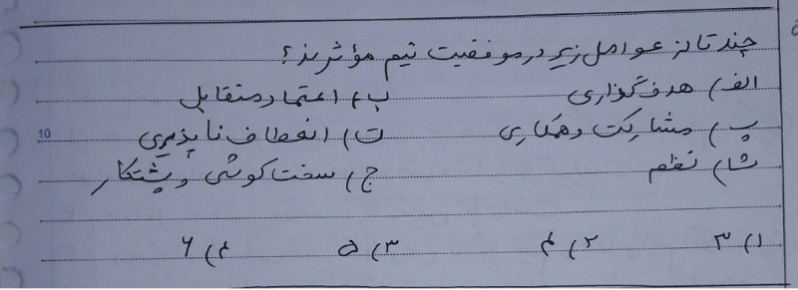 چند تا از عوامل زیر در موفقیت تیم مؤثرند؟
الف) هدف گذاری ب) اعتماد متقابل
پ) مشارکت و همکاری ت) انعطاف ناپذیری
ث) نظم ج) سخت کوشی و پشتکار
۱) ۳ ۲) ۴ ۳) ۵ ۴) ۶
10